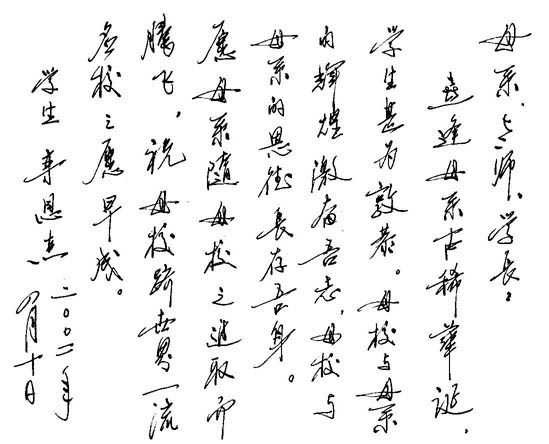 母系、上师、学长:
喜逢母系古稀华诞,
学生甚为敦恭。母校与母系
的辉煌激奋吾志,母校与
母系的恩德长存吾身。
愿母系随母校之进取而
腾飞,祝母校跻世界一流
名校之愿早成。
学生 李恩 二〇〇二年
四月十日